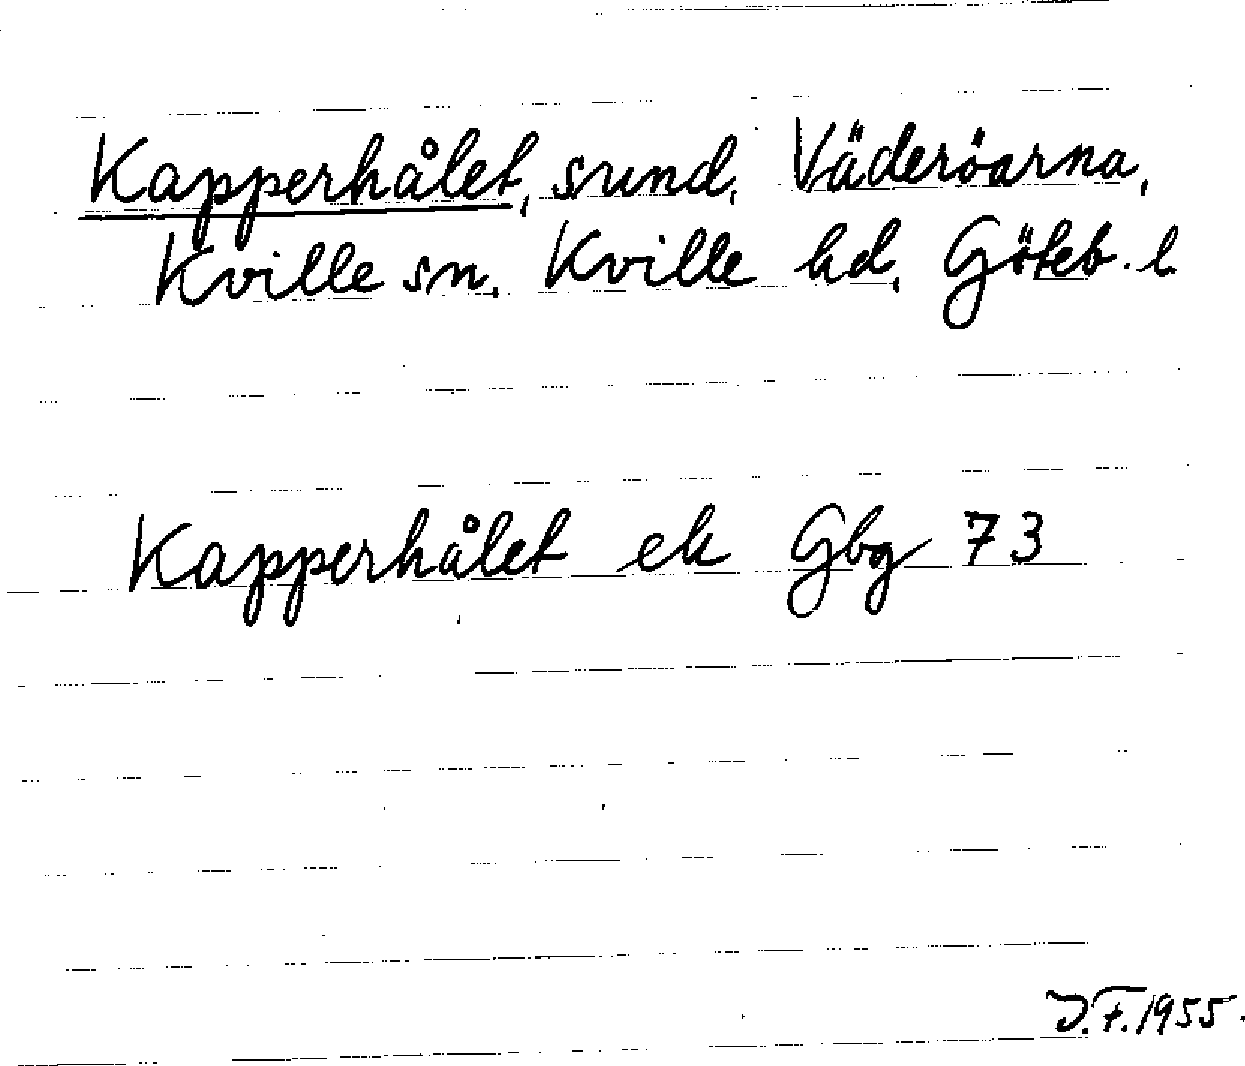 Kapperhålet, sund, Väderöarna,
Kville sn, Kville hd, Göteb. l.
Kapperhålet ek Gbg 73
D.F. 1955.